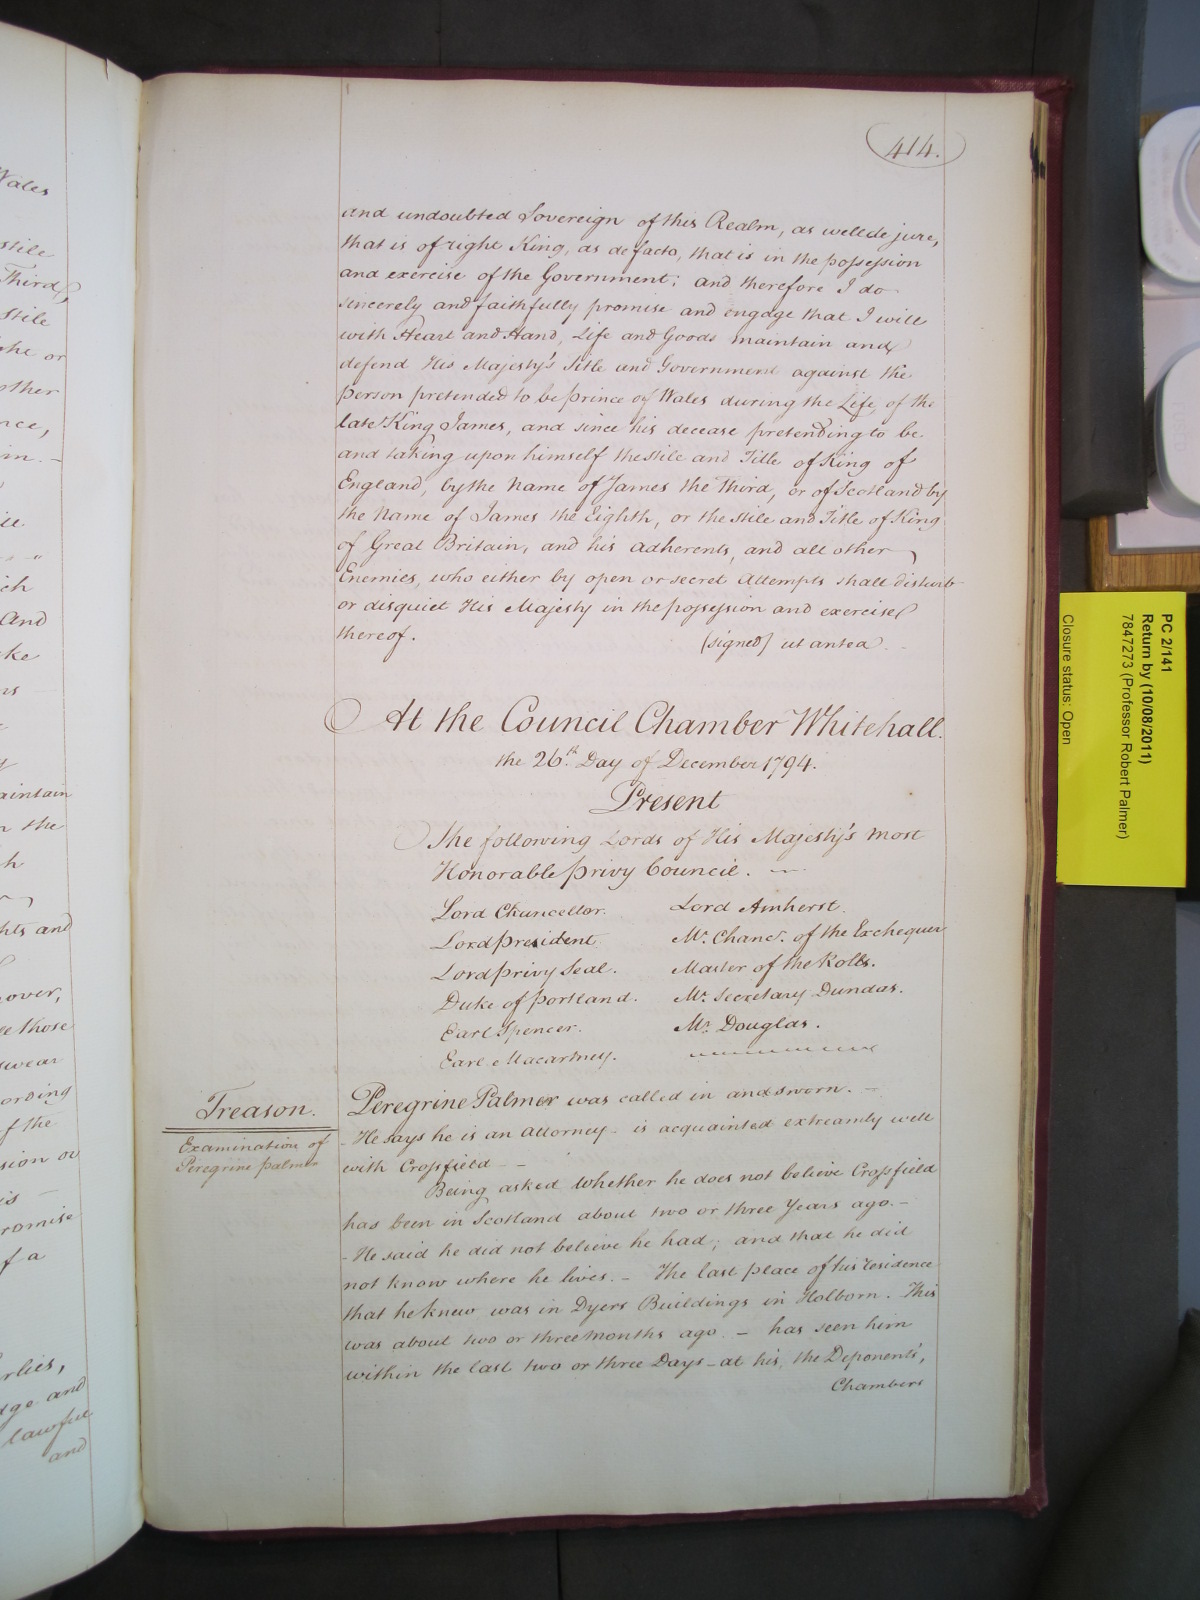 414.
and undoubted Sovereign of this Realm, as well de jure,
that is of right King, as de facto, that is in the possession
and exercise of the Government; and therefore I do
sincerely and faithfully promise and engage that I will
with Heart and Hand, Life and Goods maintain and
defend His Majesty's Title and Government against the
person pretended to be prince of Wales during the Life, of the
late King James, and since his decease pretending to be
and taking upon himself the stile and Title of King of
England, by the Name of James the Third, or of Scotland by
the Name of James the Eighth, or the stile and Title of King
of Great Britain, and his adherents, and all other
Enemies, who either by open or secret attempts shall disturb
or disquiet His Majesty in the possession and exercise
thereof.
(signed) ut antea
At the Council Chamber Whitehall.
the 26th. Day of December 1794.
Present
The following Lords of His Majesty's most
Honorable privy Council.
Lord Chancellor. Lord Amherst.
Lord president Mr. Chancr. of the Exchequer
Lord privy Seal. Master of the Rolls.
Duke of portland. Mr. Secretary Dundas.
Earl Spencer. Mr. Douglas.
Earl Macartney.
Treason.
Examination of
Peregrine palmer
Peregrine Palmer was called in and sworn. -
- He says he is an attorney - is acquainted extreamly well
with Crossfield - -
Being asked whether he does not believe Crossfield
has been in Scotland about two or three Years ago. -
- He said he did not believe he had; and that he did
not know where he lives. - The last place of his residence
that he knew was in Dyers Buildings in Holborn. This
was about two or three months ago - has seen him
within the last two or three Days - at his, the Deponents',
Chambers
Wales
stile
Third,
stile
the or
other
nce,
in. -
ich
and
ke
ns
aintain
n the
h
hts and
over,
ee those
swear
ording
f the
sion or
is -
romise
f a
rlies,
dge and
lawful
and
PC 2/141
Return by (10/08/2011)
7847273 (Professor Robert Palmer)
Closure status: Open